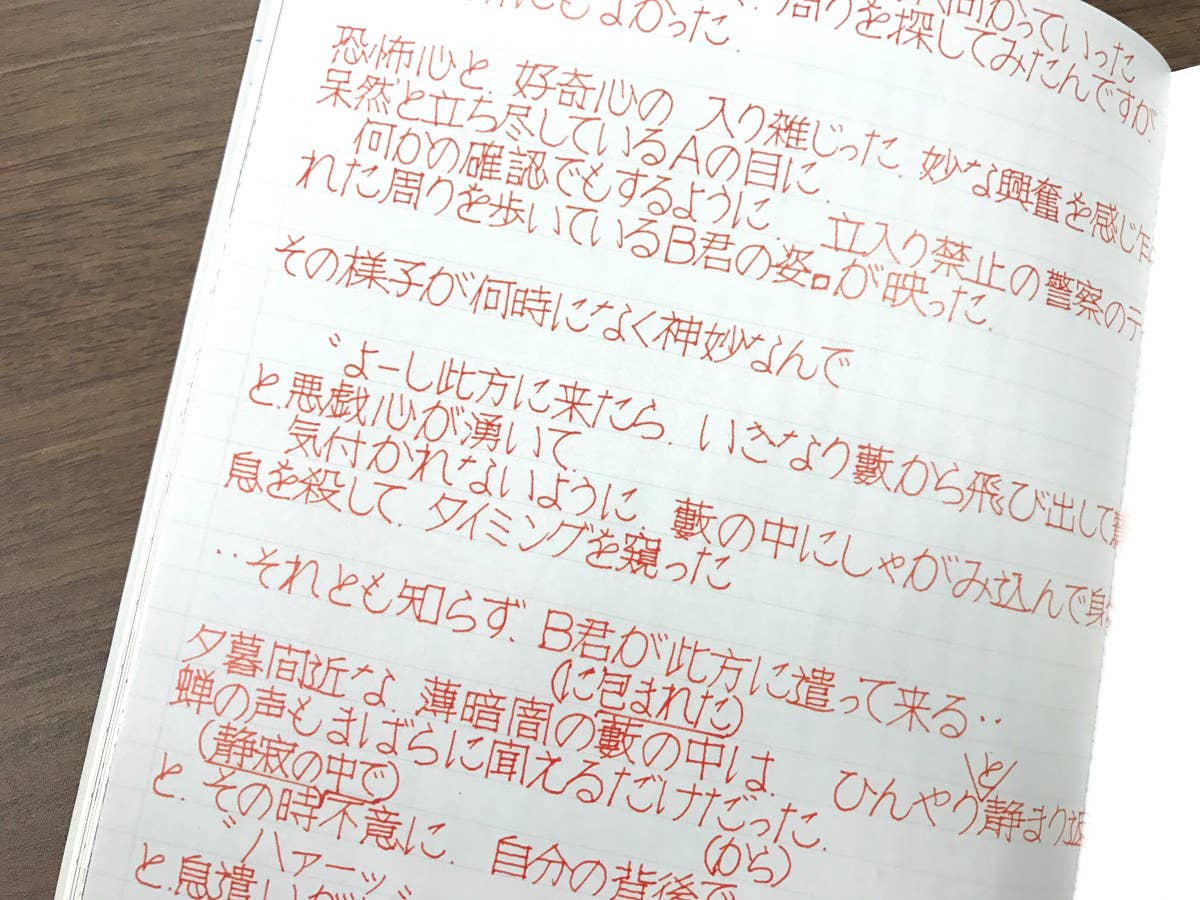 向かっていった
にもよかった.
周りを探してみたんですが.
恐怖心と. 好奇心の 入り雑じった. 妙な興奮を感じ乍ら
呆然と立ち尽しているAの目に.
何かの確認でもするように. 立入り禁止の警察のテ
れた周りを歩いているB君の姿が映った.
その様子が何時になく神妙なんで
〝よーし此方に来たら. いきなり藪から飛び出して驚
と.悪戯心が湧いて.
気付かれないように. 藪の中にしゃがみ込んで身
息を殺して. タイミングを窺った
‥それとも知らず. B君が此方に遣って来る‥
(に包まれた)
夕暮間近な. 薄暗闇の藪の中は. ひんやり静まり返
と
蝉の声もまばらに聞えるだけだった.
(静寂の中で)
と. その時不意に. 自分の背後で
(から)
〝ハァーッ〟
と.息遣いが